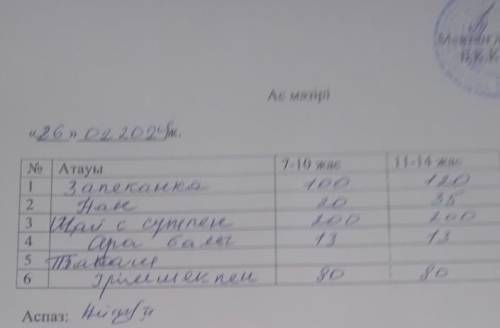 Ас мәзірі
«26» 02 202 ж.
№ Атауы 7-10 жас 11-14 жас
1 Запеканка 100 120
2 Нан 20 35
3 Шай с сүтпен 200 200
4 Ара балы 13 13
5
6 Ірімшекпен 80 80
Аспаз: